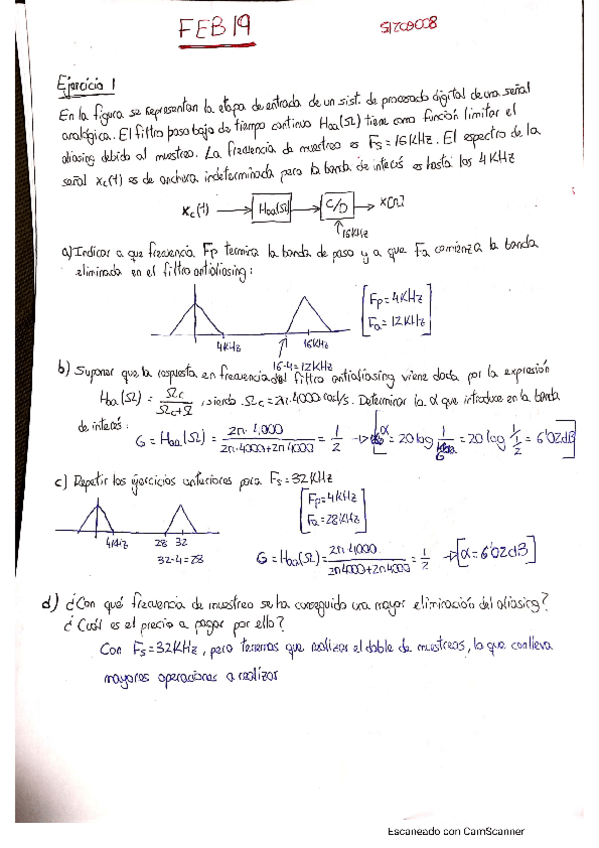 FEB 19
51209008
Ejercicio 1
En la figura se representan la etapa de entrada de un sist. de procesado digital de una señal
analógica. El filtro paso bajo de tiempo continuo Haa(Ω) tiene como función limitar el
aliasing debido al muestreo. La frecuencia de muestreo es Fs = 16KHz. El espectro de la
señal xc(t) es de anchura indeterminada pero la banda de interés es hasta los 4KHz
Xc(t) → Haa(Ω) → C/D → X[n]
↑16KHz
a) Indicar a que frecuencia Fp termina la banda de paso y a que Fa comienza la banda
eliminada en el filtro antialiasing:
Fp = 4KHz
Fa = 12KHz
4KHz 16KHz
16-4=12KHz
b) Suponer que la respuesta en frecuencia del filtro antialiasing viene dada por la expresión
Haa(Ω) = Ωc / Ωc+Ω, siendo Ωc = 2π·4000 rad/s. Determinar la α que introduce en la banda
de interés:
G = Haa(Ω) = 2π·4000 / 2π·4000+2π·4000 = 1/2 → α = 20 log 1/G = 20 log 1/½ = 6'02dB
c) Repetir los ejercicios anteriores para Fs = 32KHz
Fp = 4KHz
Fa = 28KHz
4KHz 28 32
32-4=28
G = Haa(Ω) = 2π·4000 / 2π4000+2π4000 = 1/2 → [α = 6'02dB]
d) ¿Con qué frecuencia de muestreo se ha conseguido una mayor eliminación del aliasing?
¿Cuál es el precio a pagar por ello?
Con Fs = 32KHz, pero tenemos que realizar el doble de muestreos, lo que conlleva
mayores operaciones a realizar
Escaneado con CamScanner